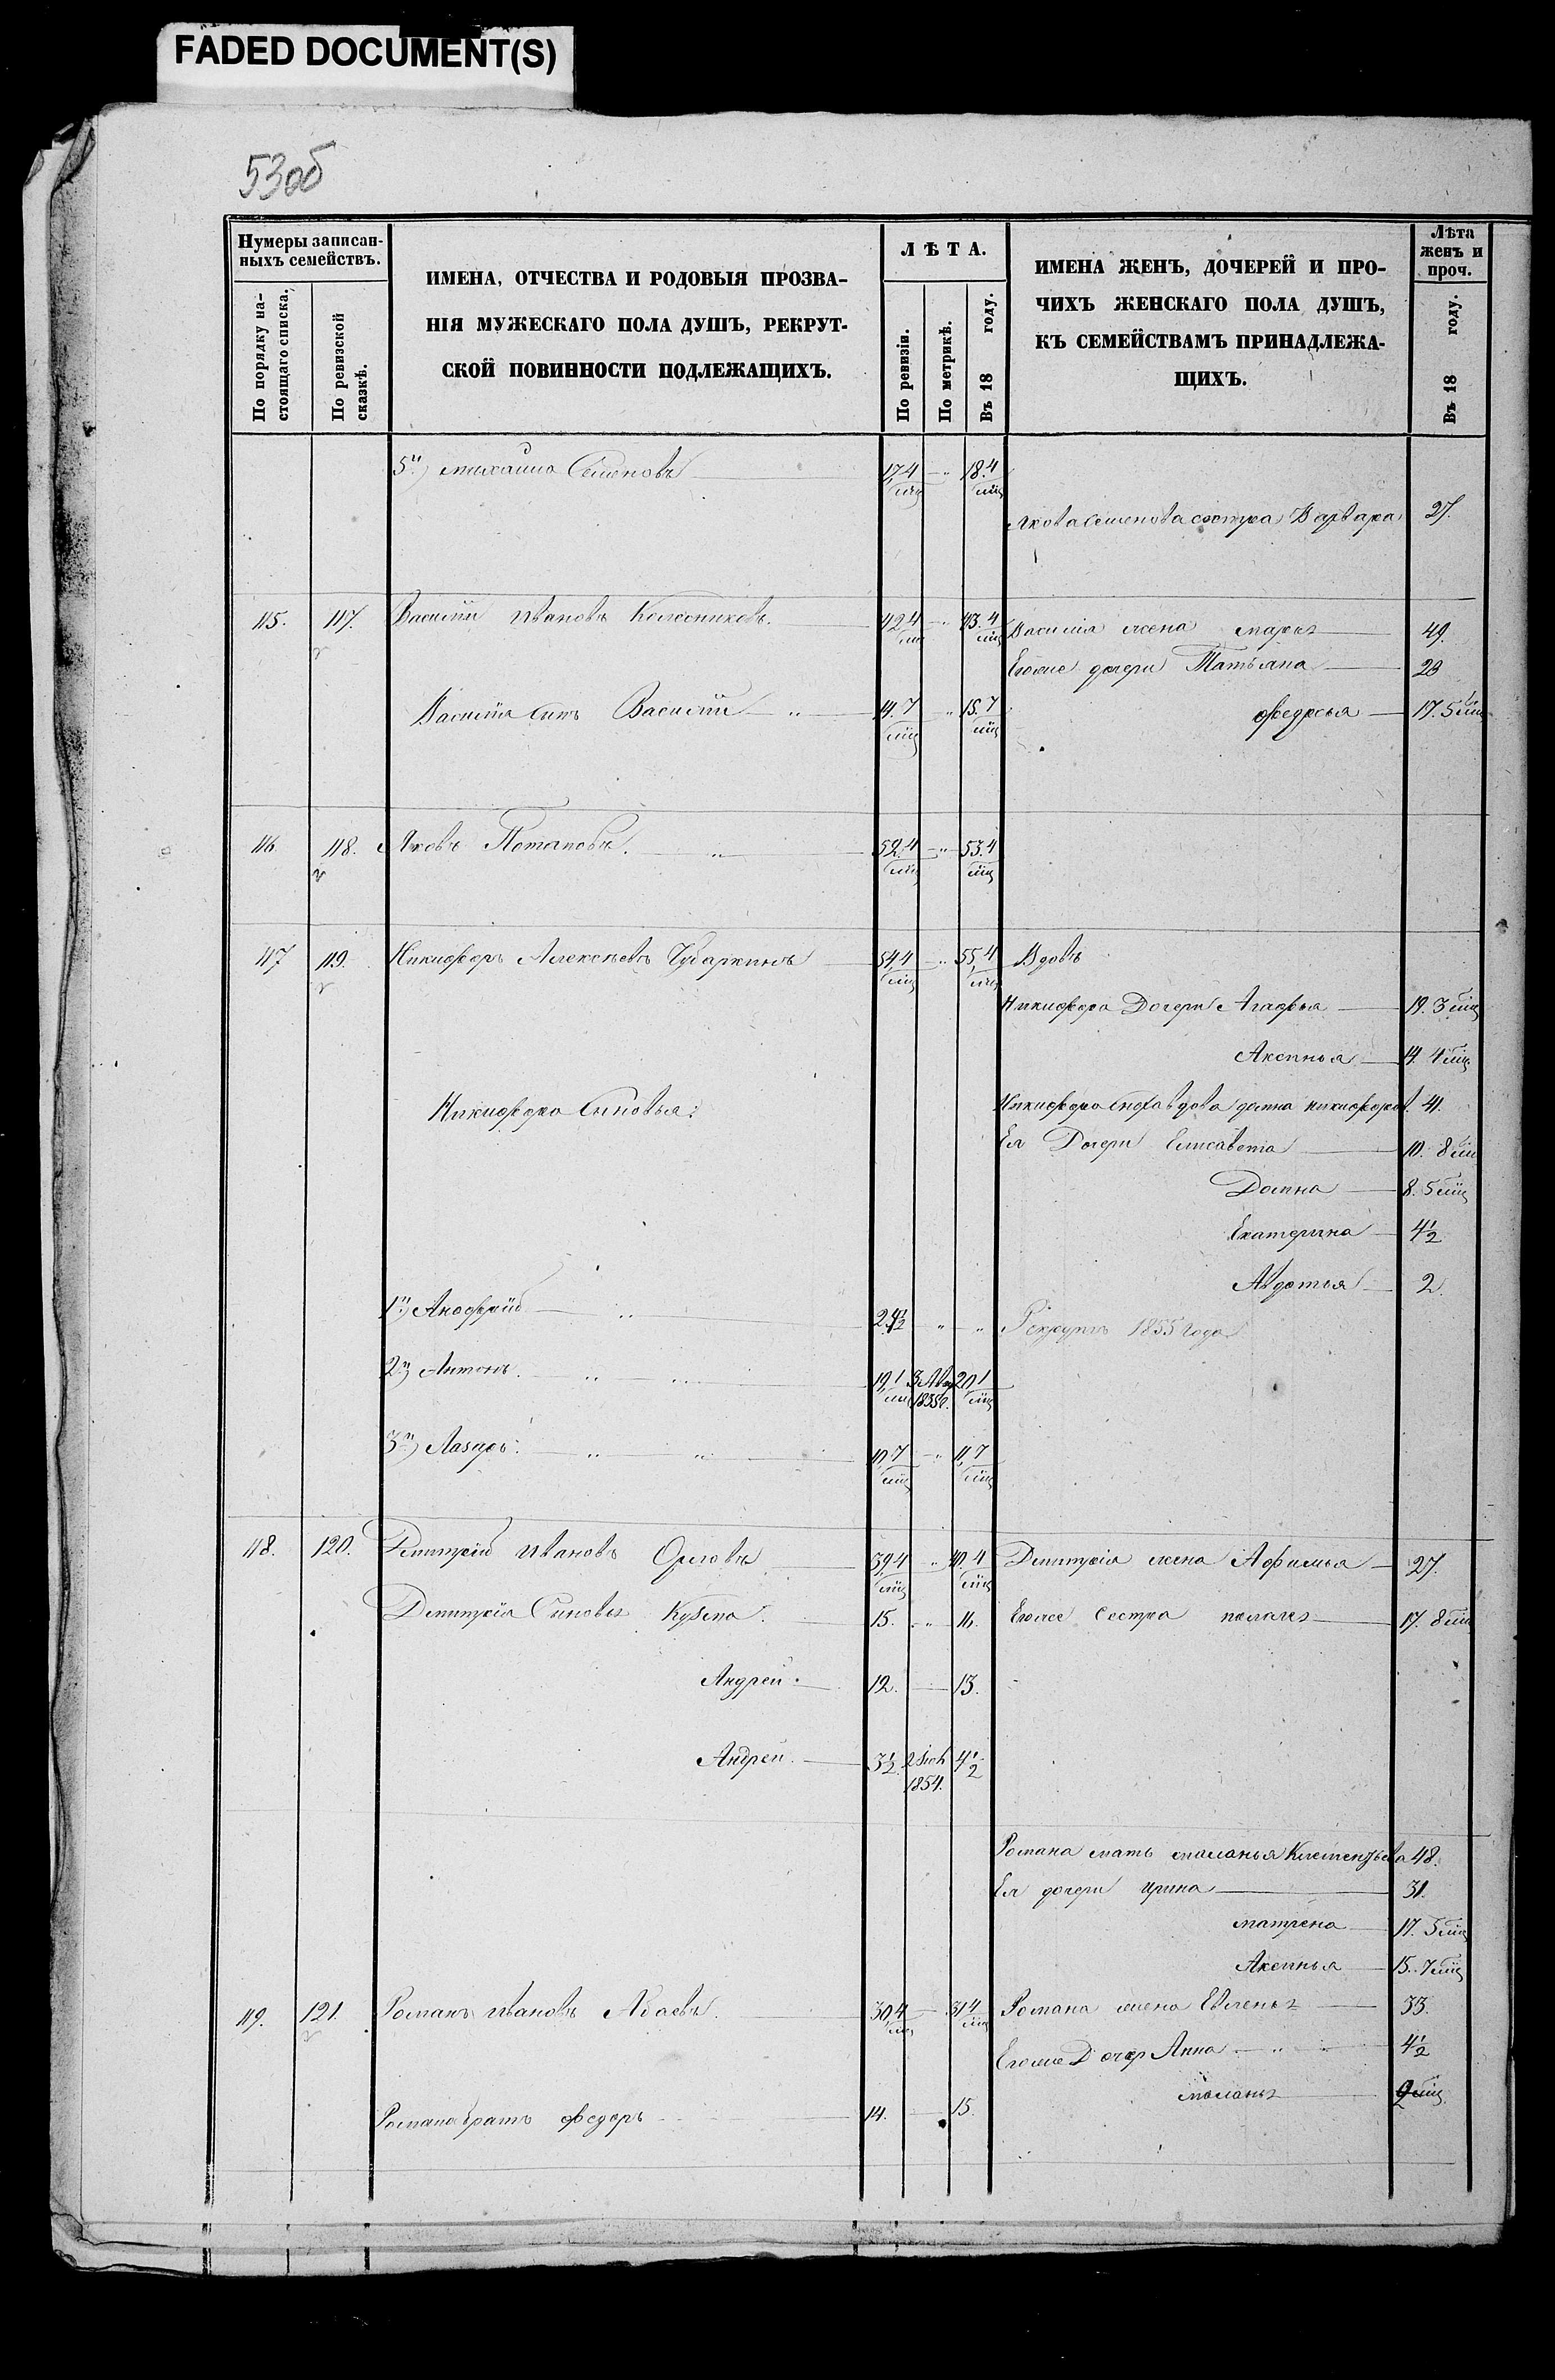 FADED DOCUMENT(S)
53об
Нумеры записан-
ныхъ семействъ.
По порядку на-
стоящаго списка.
По ревизской
сказкѣ.
ИМЕНА, ОТЧЕСТВА И РОДОВЫЯ ПРОЗВА-
НІЯ МУЖЕСКАГО ПОЛА ДУШЪ, РЕКРУТ-
СКОЙ ПОВИННОСТИ ПОДЛЕЖАЩИХЪ.
ЛѢТА.
По ревизіи.
По метрикѣ.
Въ 18 году.
ИМЕНА ЖЕНЪ, ДОЧЕРЕЙ И ПРО-
ЧИХЪ ЖЕНСКАГО ПОЛА ДУШЪ,
КЪ СЕМЕЙСТВАМЪ ПРИНАДЛЕЖА-
ЩИХЪ.
Лѣта
женъ и
проч.
Въ 18 году.
5й) Михаило Семеновъ 17,4 мц 18.4 мц
Якова Семенова сестра Варвара 27.
115. 117. Василій Ивановъ Колесниковъ. 42,4 мц 43.4 мц Василія жена Марья 49.
Егоже дочери Татьяна 23
Василія Сынъ Василій 14.7 мц 15.7 мц Федосья 17.5 мц
116. 118. Яковъ Потаповъ. 52.4 мц 53.4 мц
117 119. Никифоръ Алексѣевъ Чубаркинъ 54,4 мц 55,4 мц Вдовъ
Никифора Дочери Агафья 19.3 мц
Аксинья 14.4 мц.
Никифора Сыновья: Никифора вдова домна никифоров. 41.
Ея Дочери Елисавета 10. 8 мц
Домна 8. 5 мц
Екатерина 4½
Авдотья 2.
1й) Анофрій 24½ Рекрутъ 1855 года
2й) Антонъ. 19,1 мц 3 Авг 1838г. 20,1 мц
3й) Лазарь. 10,7 мц 11,7 мц
118. 120. Дмитрій Ивановъ Орловъ 39,4 мц 40.4 мц Дмитрія жена Афимья 27.
Дмитрія Сыновья Кузма. 15. 16. Егоже Сестра палагея 17. 8 мц
Андрей. 12. 13.
Андрей. 3½ 1854. 4½
Романа мать маланья Клементьева 48.
Ея дочери Ирина 31.
матрена 17. 5 мц
Аксинья 15. 7 мц
119. 121. Романъ Ивановъ Абаевъ. 30,4 мц 31,4 мц Романа жена Евгенья 33.
Егоже Дочер Анна 4½
маланья 9 мц.
Романа братъ федоръ 14. 15.